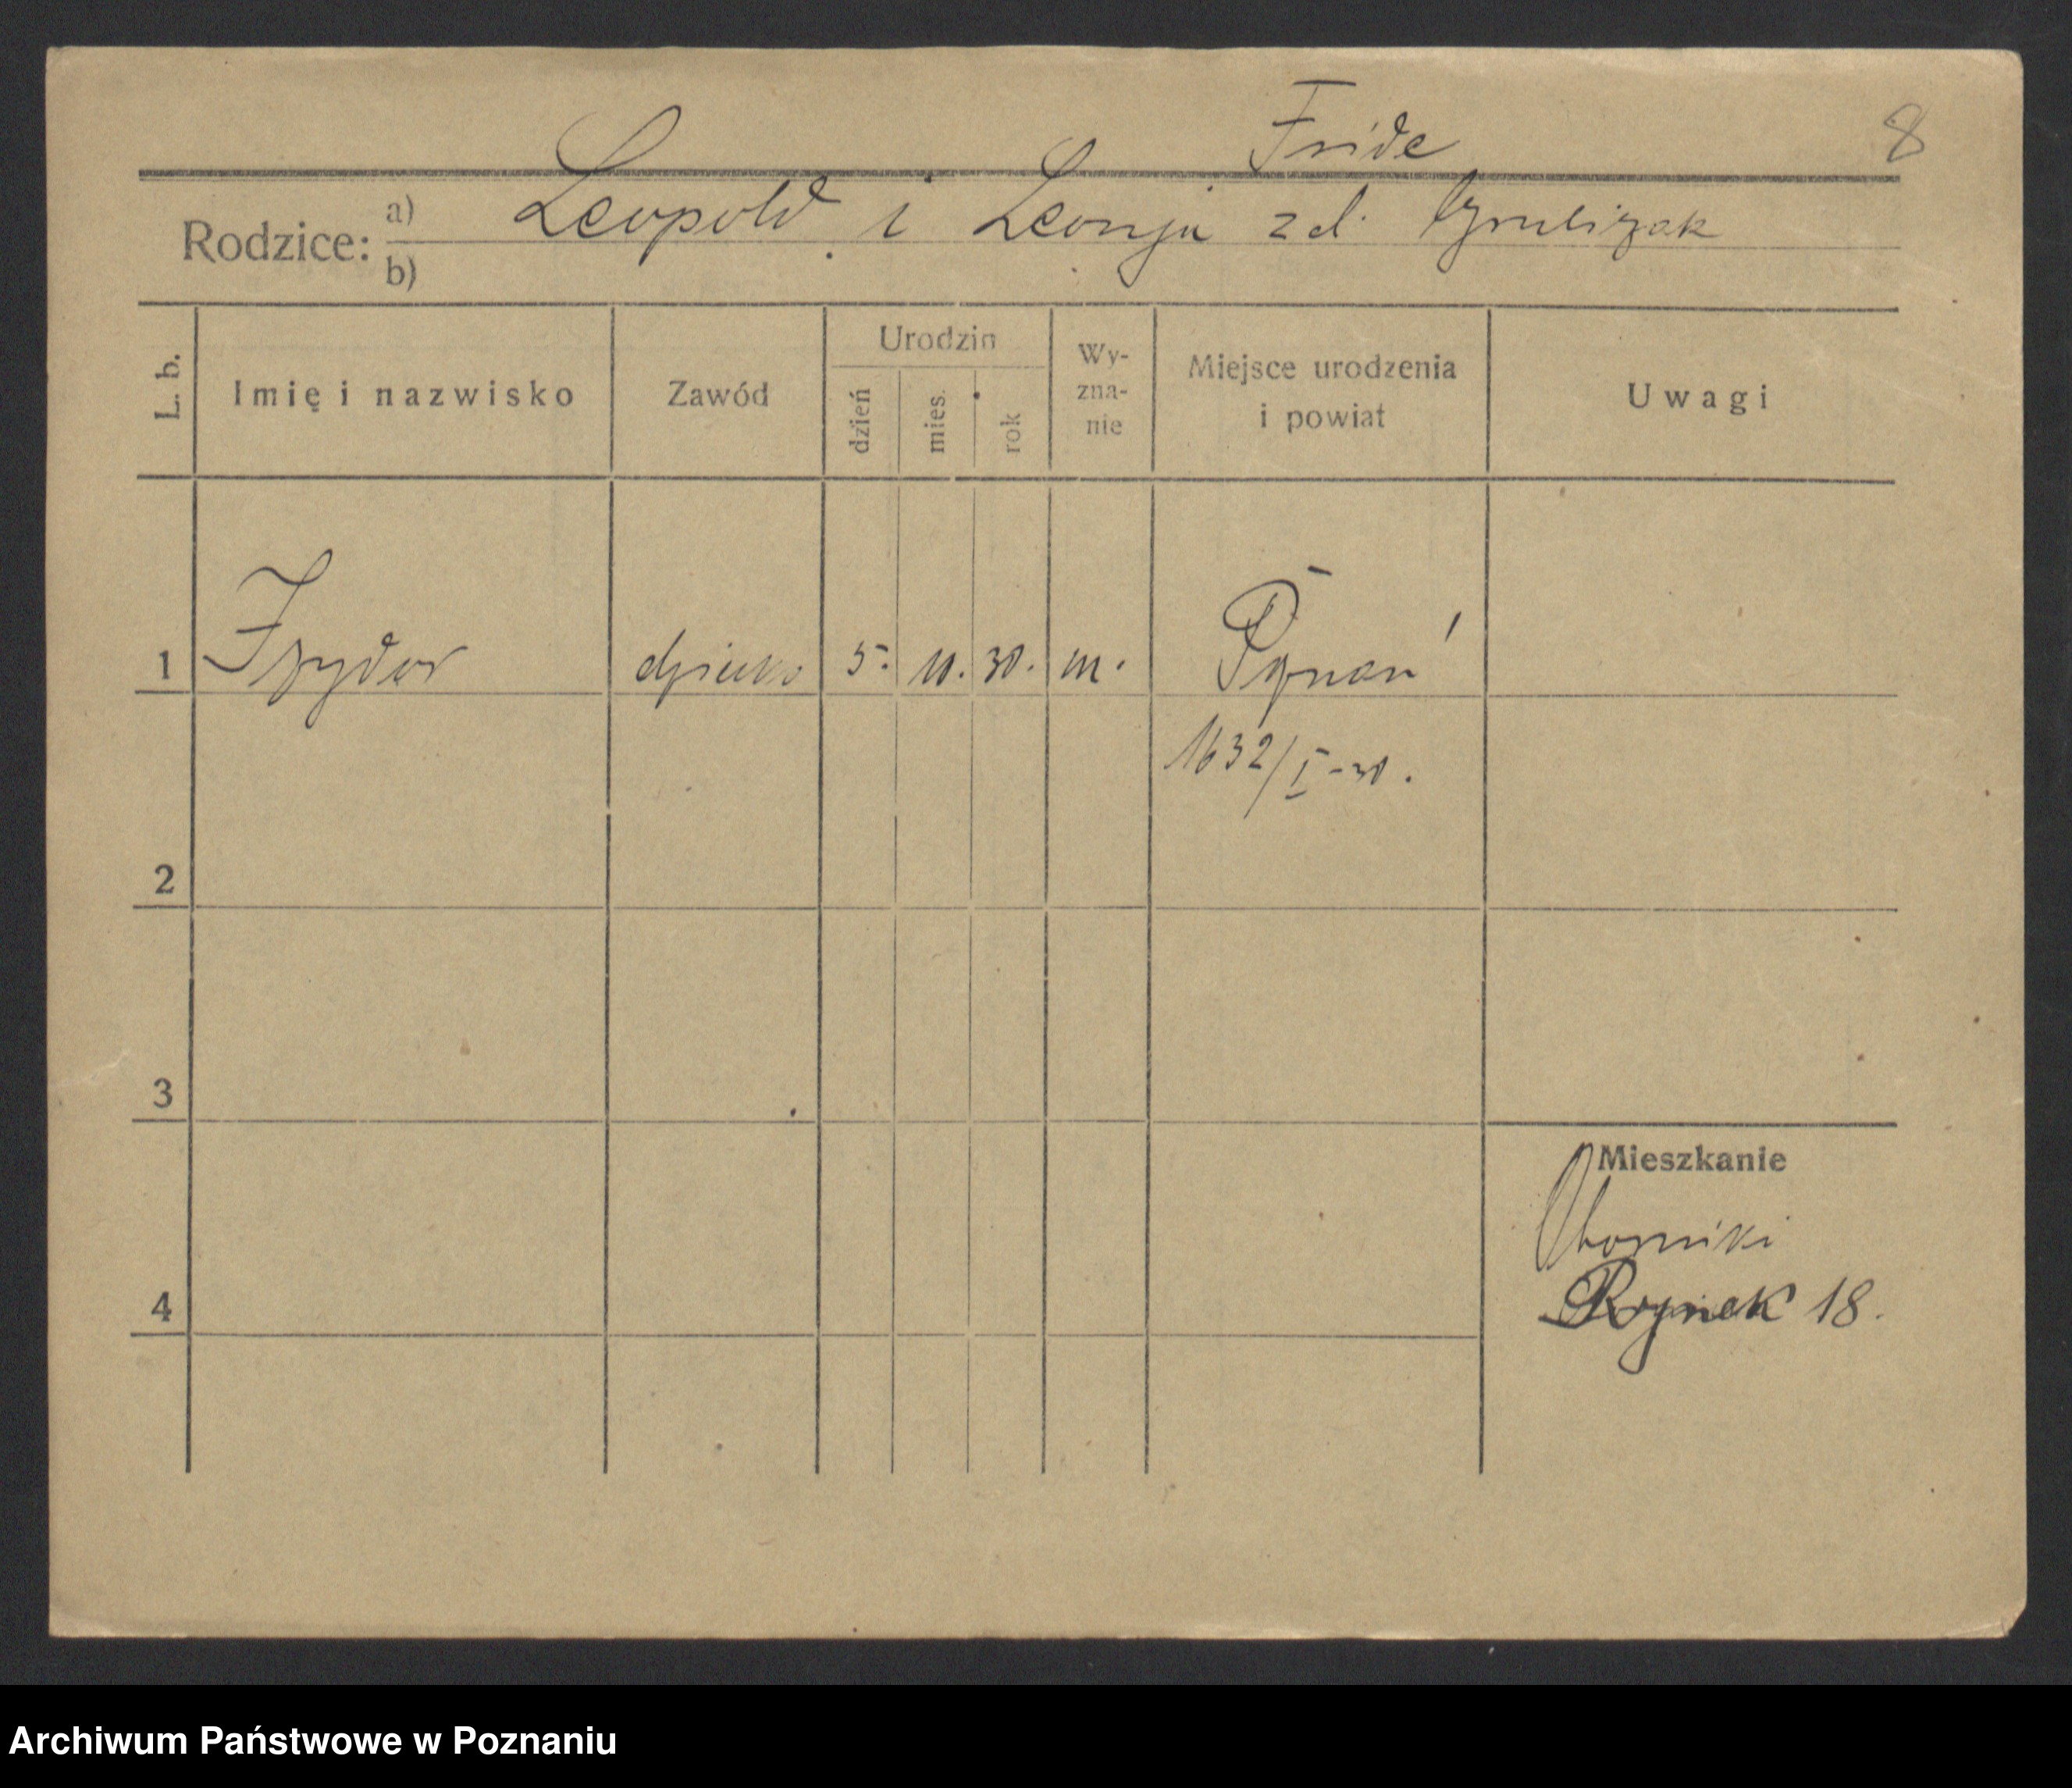 Fride
8
Rodzice: a) Leopold i Leonja z d.
b)
L. b.
Imię i nazwisko
Zawód
Urodzin
dzień
mies.
rok
Wy-
zna-
nie
Miejsce urodzenia
i powiat
Uwagi
1 Izydor dziecko 5. 10. 30. m. Poznań
1632/I-30.
2
3
4
Mieszkanie
Oborniki
Rynek 18.
Archiwum Państwowe w Poznaniu